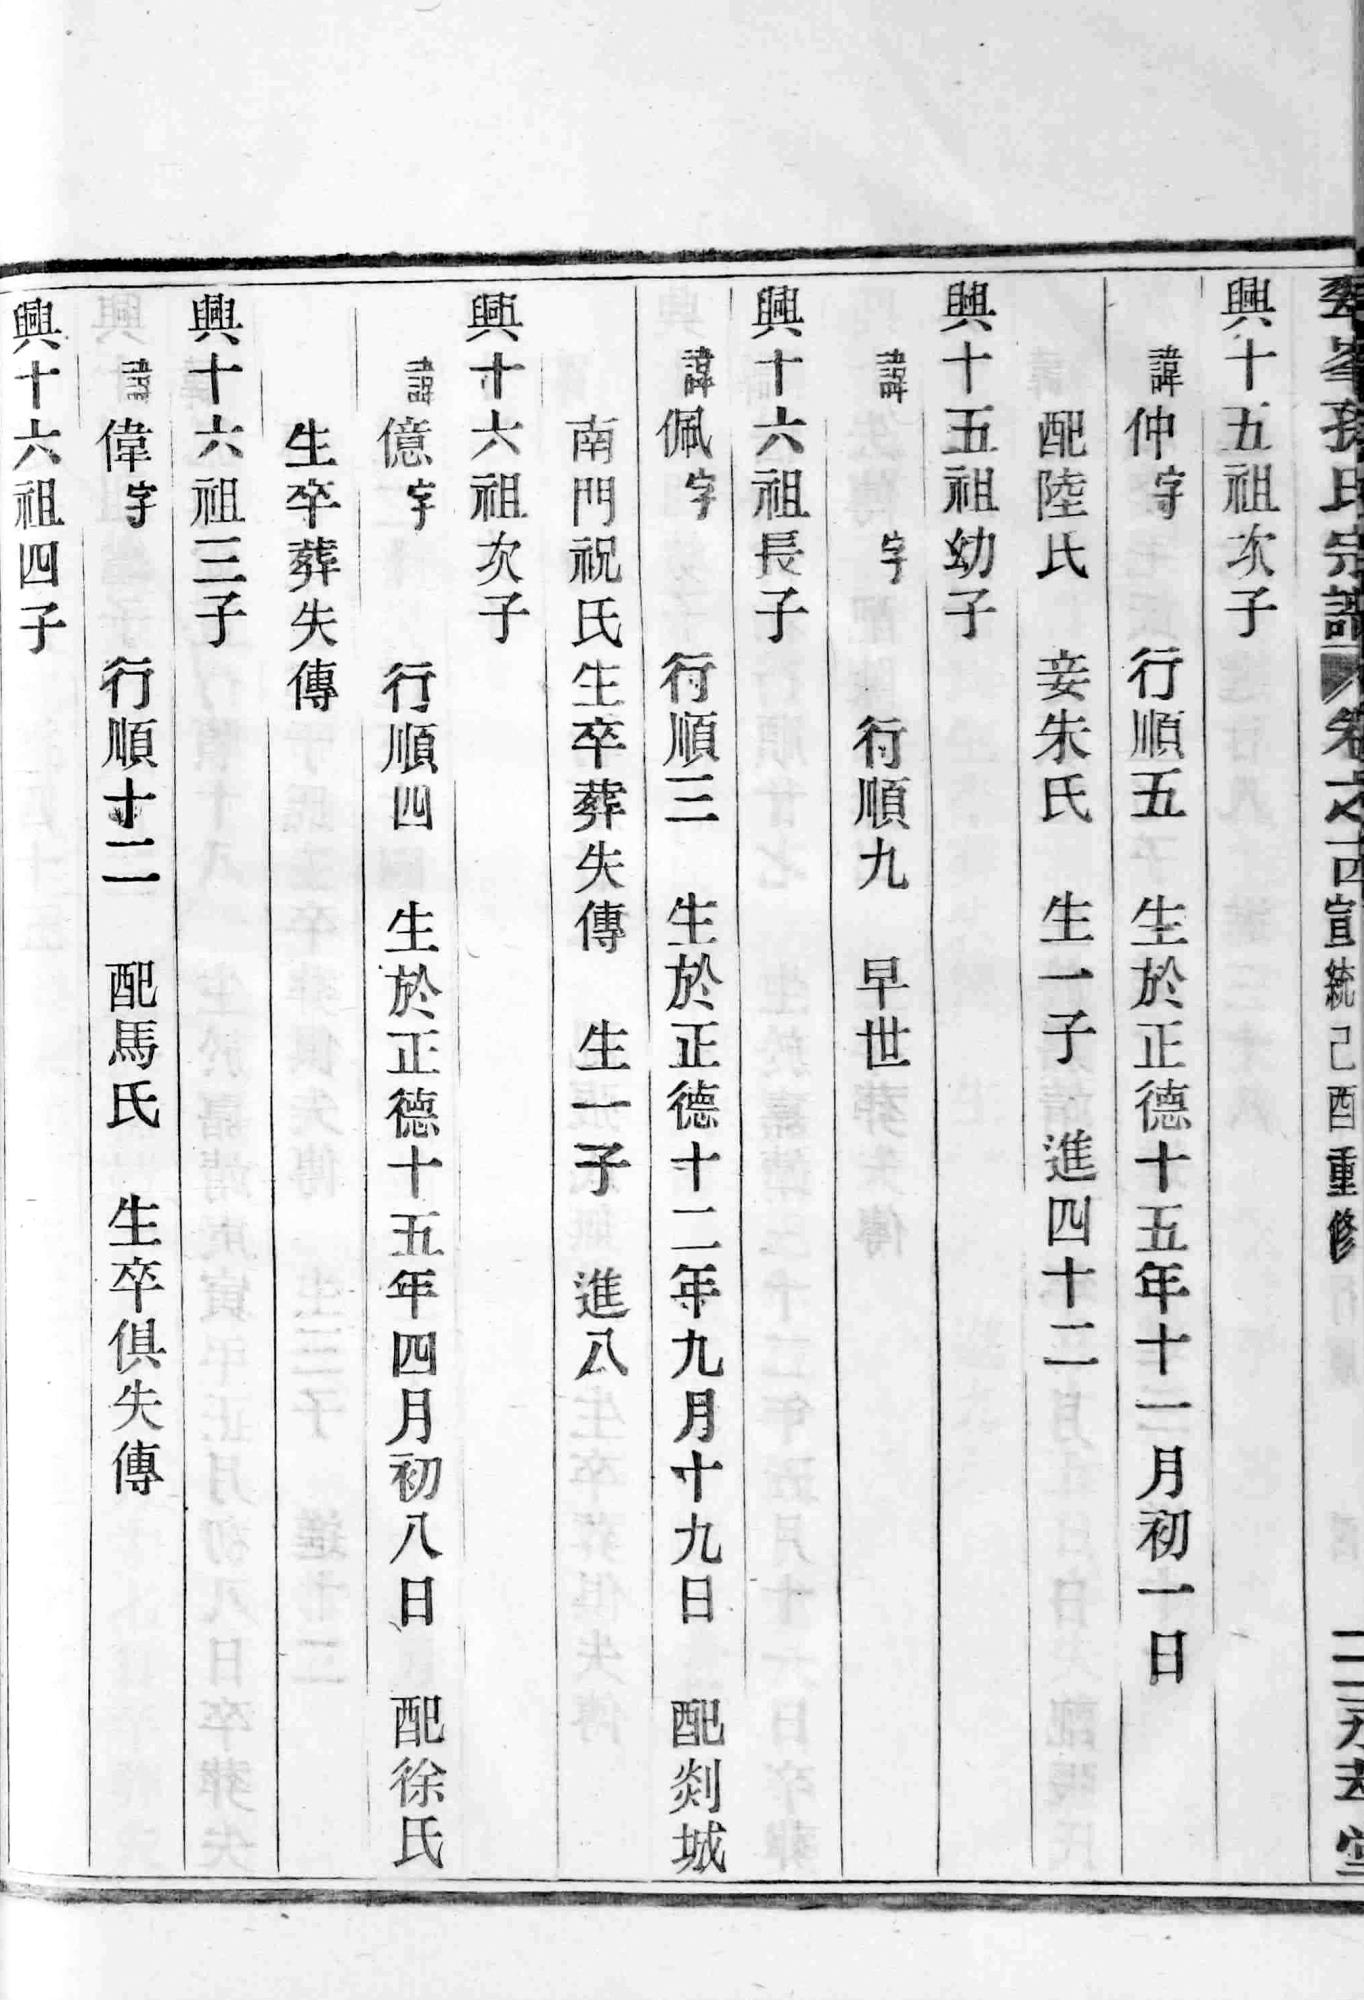 孫氏宗譜 卷之古 宣統己酉重修 二 永
興十五祖次子
諱仲字 行順五 生於正德十五年十二月初一日
配陸氏 妾朱氏 生一子 進四十二
興十五祖幼子
諱 字 行順九 早世
興十六祖長子
諱佩字 行順三 生於正德十二年九月十九日 配剡城
南門祝氏生卒葬失傳 生一子 進八
興十六祖次子
諱億字 行順四 生於正德十五年四月初八日 配徐氏
生卒葬失傳
興十六祖三子
諱偉字 行順十二 配馬氏 生卒俱失傳
興十六祖四子